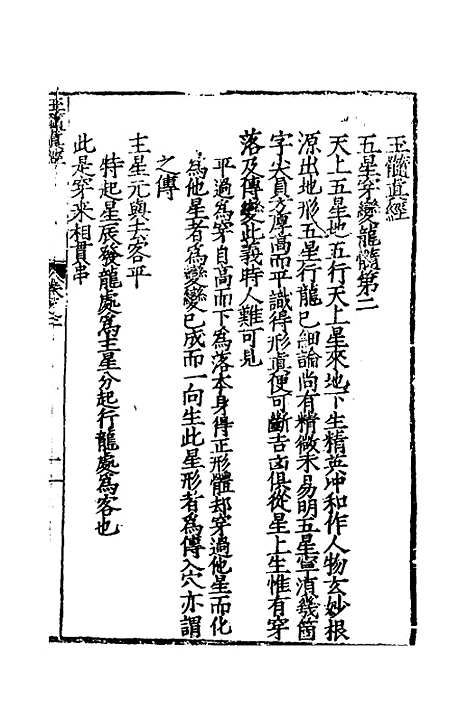 玉髓真經
五星穿變龍髓第二
天上五星地五行天上星來地下生精英冲和作人物玄妙根
源出地形五星行龍已細論尚有精微未易明五星寧消幾箇
字尖員方厚高而平識得形真便可斷吉凶俱從星上生惟有穿
落及傳變此義時人難可見
平過為穿自高而下為落本身得正形體却穿過他星而化
為他星者為變變已成而一向生此星形者為傳入穴亦謂
之傳
主星元與去客平
特起星辰發龍處為主星分起行龍處為客也
此是穿來相貫串